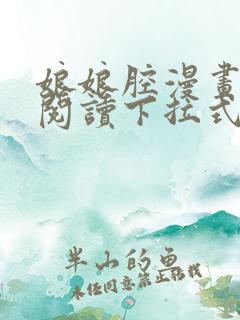 娘娘腔漫畫
閱讀下拉式
半山的魚
未經同意禁止轉載